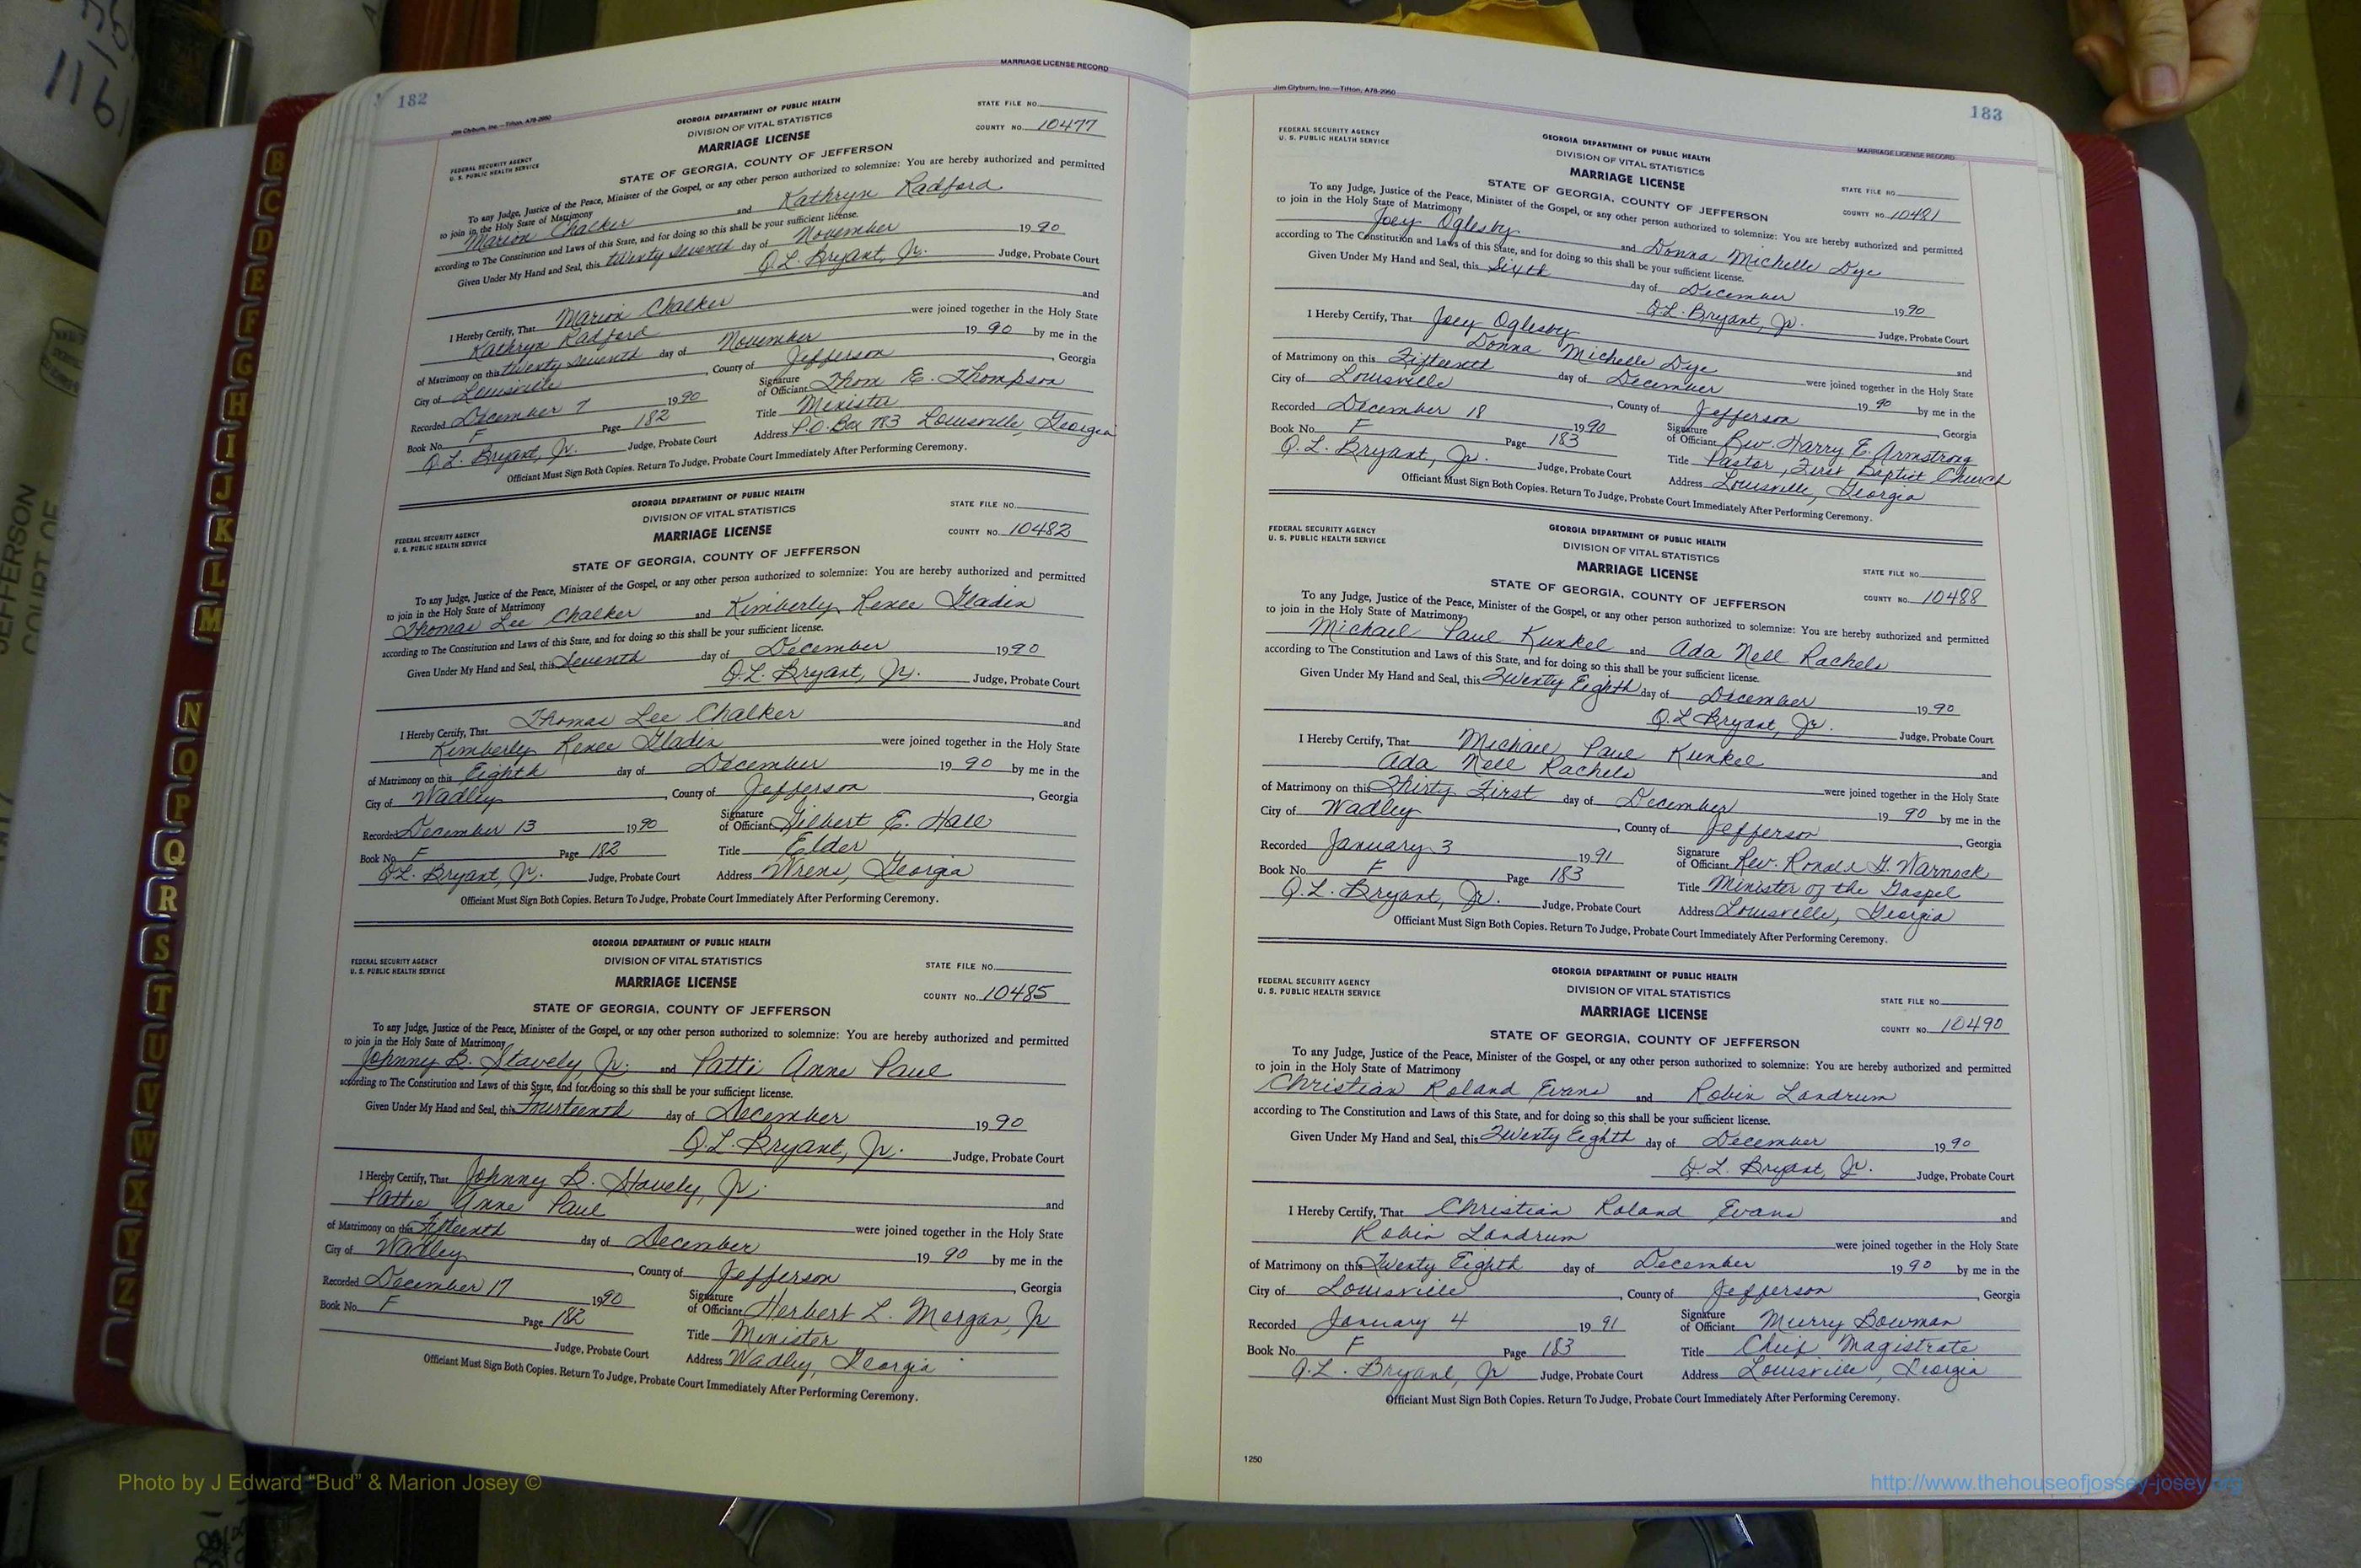 182
MARRIAGE LICENSE RECORD
Jim Clyburn, Inc.—Tifton, A78-2950
GEORGIA DEPARTMENT OF PUBLIC HEALTH
STATE FILE NO.
FEDERAL SECURITY AGENCY
DIVISION OF VITAL STATISTICS
U. S. PUBLIC HEALTH SERVICE
MARRIAGE LICENSE
COUNTY NO. 10477
STATE OF GEORGIA, COUNTY OF JEFFERSON
To any Judge, Justice of the Peace, Minister of the Gospel, or any other person authorized to solemnize: You are hereby authorized and permitted
to join in the Holy State of Matrimony
Marion Chalker and Kathryn Radford
according to The Constitution and Laws of this State, and for doing so this shall be your sufficient license.
Given Under My Hand and Seal, this twenty seventh day of November 1990
Q.L. Bryant, Jr. Judge, Probate Court
I Hereby Certify, That Marion Chalker and
Kathryn Radford were joined together in the Holy State
of Matrimony on this twenty seventh day of November 1990 by me in the
City of Louisville, County of Jefferson, Georgia
Recorded December 7 1990 Signature of Officiant Thom E. Thompson
Book No. F Page 182 Title Minister
Q.L. Bryant, Jr. Judge, Probate Court Address P.O. Box 783 Louisville, Georgia
Officiant Must Sign Both Copies. Return To Judge, Probate Court Immediately After Performing Ceremony.
GEORGIA DEPARTMENT OF PUBLIC HEALTH
STATE FILE NO.
FEDERAL SECURITY AGENCY
DIVISION OF VITAL STATISTICS
U. S. PUBLIC HEALTH SERVICE
MARRIAGE LICENSE
COUNTY NO. 10482
STATE OF GEORGIA, COUNTY OF JEFFERSON
To any Judge, Justice of the Peace, Minister of the Gospel, or any other person authorized to solemnize: You are hereby authorized and permitted
to join in the Holy State of Matrimony
Thomas Lee Chalker and Kimberly Renee Gladin
according to The Constitution and Laws of this State, and for doing so this shall be your sufficient license.
Given Under My Hand and Seal, this Seventh day of December 1990
Q.L. Bryant, Jr. Judge, Probate Court
I Hereby Certify, That Thomas Lee Chalker and
Kimberly Renee Gladin were joined together in the Holy State
of Matrimony on this Eighth day of December 1990 by me in the
City of Wadley, County of Jefferson, Georgia
Recorded December 13 1990 Signature of Officiant Gilbert E. Hall
Book No. F Page 182 Title Elder
Q.L. Bryant, Jr. Judge, Probate Court Address Wrens, Georgia
Officiant Must Sign Both Copies. Return To Judge, Probate Court Immediately After Performing Ceremony.
GEORGIA DEPARTMENT OF PUBLIC HEALTH
FEDERAL SECURITY AGENCY
DIVISION OF VITAL STATISTICS
STATE FILE NO.
U. S. PUBLIC HEALTH SERVICE
MARRIAGE LICENSE
COUNTY NO. 10485
STATE OF GEORGIA, COUNTY OF JEFFERSON
To any Judge, Justice of the Peace, Minister of the Gospel, or any other person authorized to solemnize: You are hereby authorized and permitted
to join in the Holy State of Matrimony
Johnny B. Stavely, Jr. and Patti Anne Paul
according to The Constitution and Laws of this State, and for doing so this shall be your sufficient license.
Given Under My Hand and Seal, this Fourteenth day of December 1990
Q.L. Bryant, Jr. Judge, Probate Court
I Hereby Certify, That Johnny B. Stavely, Jr. and
Pattie Anne Paul were joined together in the Holy State
of Matrimony on this Fifteenth day of December 1990 by me in the
City of Wadley, County of Jefferson, Georgia
Recorded December 17 1990 Signature of Officiant Herbert L. Morgan, Jr
Book No. F Page 182 Title Minister
Judge, Probate Court Address Wadley, Georgia
Officiant Must Sign Both Copies. Return To Judge, Probate Court Immediately After Performing Ceremony.
Jim Clyburn, Inc.—Tifton, A78-2950
183
MARRIAGE LICENSE RECORD
FEDERAL SECURITY AGENCY
U. S. PUBLIC HEALTH SERVICE
GEORGIA DEPARTMENT OF PUBLIC HEALTH
DIVISION OF VITAL STATISTICS
MARRIAGE LICENSE
STATE FILE NO.
STATE OF GEORGIA, COUNTY OF JEFFERSON
COUNTY NO. 10481
To any Judge, Justice of the Peace, Minister of the Gospel, or any other person authorized to solemnize: You are hereby authorized and permitted
to join in the Holy State of Matrimony
Joey Oglesby and Donna Michelle Dye
according to The Constitution and Laws of this State, and for doing so this shall be your sufficient license.
Given Under My Hand and Seal, this Sixth day of December 1990
Q.L. Bryant, Jr. Judge, Probate Court
I Hereby Certify, That Joey Oglesby and
Donna Michelle Dye were joined together in the Holy State
of Matrimony on this Fifteenth day of December 1990 by me in the
City of Louisville, County of Jefferson, Georgia
Recorded December 18 1990 Signature of Officiant Rev. Harry E. Armstrong
Book No. F Page 183 Title Pastor, First Baptist Church
Q.L. Bryant, Jr. Judge, Probate Court Address Louisville, Georgia
Officiant Must Sign Both Copies. Return To Judge, Probate Court Immediately After Performing Ceremony.
FEDERAL SECURITY AGENCY
U. S. PUBLIC HEALTH SERVICE
GEORGIA DEPARTMENT OF PUBLIC HEALTH
DIVISION OF VITAL STATISTICS
MARRIAGE LICENSE
STATE FILE NO.
STATE OF GEORGIA, COUNTY OF JEFFERSON
COUNTY NO. 10488
To any Judge, Justice of the Peace, Minister of the Gospel, or any other person authorized to solemnize: You are hereby authorized and permitted
to join in the Holy State of Matrimony
Michael Paul Kunkel and Ada Nell Rachels
according to The Constitution and Laws of this State, and for doing so this shall be your sufficient license.
Given Under My Hand and Seal, this Twenty Eighth day of December 1990
Q.L Bryant, Jr. Judge, Probate Court
I Hereby Certify, That Michael Paul Kunkel and
Ada Nell Rachels were joined together in the Holy State
of Matrimony on this Thirty First day of December 1990 by me in the
City of Wadley, County of Jefferson, Georgia
Recorded January 3 1991 Signature of Officiant Rev. Ronald G. Warnock
Book No. F Page 183 Title Minister of the Gospel
Q.L. Bryant, Jr. Judge, Probate Court Address Louisville, Georgia
Officiant Must Sign Both Copies. Return To Judge, Probate Court Immediately After Performing Ceremony.
GEORGIA DEPARTMENT OF PUBLIC HEALTH
FEDERAL SECURITY AGENCY
DIVISION OF VITAL STATISTICS
U. S. PUBLIC HEALTH SERVICE
STATE FILE NO.
MARRIAGE LICENSE
COUNTY NO. 10490
STATE OF GEORGIA, COUNTY OF JEFFERSON
To any Judge, Justice of the Peace, Minister of the Gospel, or any other person authorized to solemnize: You are hereby authorized and permitted
to join in the Holy State of Matrimony
Christian Roland Evans and Robin Landrum
according to The Constitution and Laws of this State, and for doing so this shall be your sufficient license.
Given Under My Hand and Seal, this Twenty Eighth day of December 1990
Q.L. Bryant, Jr. Judge, Probate Court
I Hereby Certify, That Christian Roland Evans and
Robin Landrum were joined together in the Holy State
of Matrimony on this Twenty Eighth day of December 1990 by me in the
City of Louisville, County of Jefferson, Georgia
Recorded January 4 1991 Signature of Officiant Murry Bowman
Book No. F Page 183 Title Chief Magistrate
Q.L. Bryant, Jr Judge, Probate Court Address Louisville, Georgia
Officiant Must Sign Both Copies. Return To Judge, Probate Court Immediately After Performing Ceremony.
1250
B
C
D
E
F
G
H
I
J
K
L
M
N
O
P
Q
R
S
T
U
V
W
X
Y
Z
JEFFERSON
COURT OF
Photo by J Edward “Bud” & Marion Josey ©
http://www.thehouseofjossey-josey.org